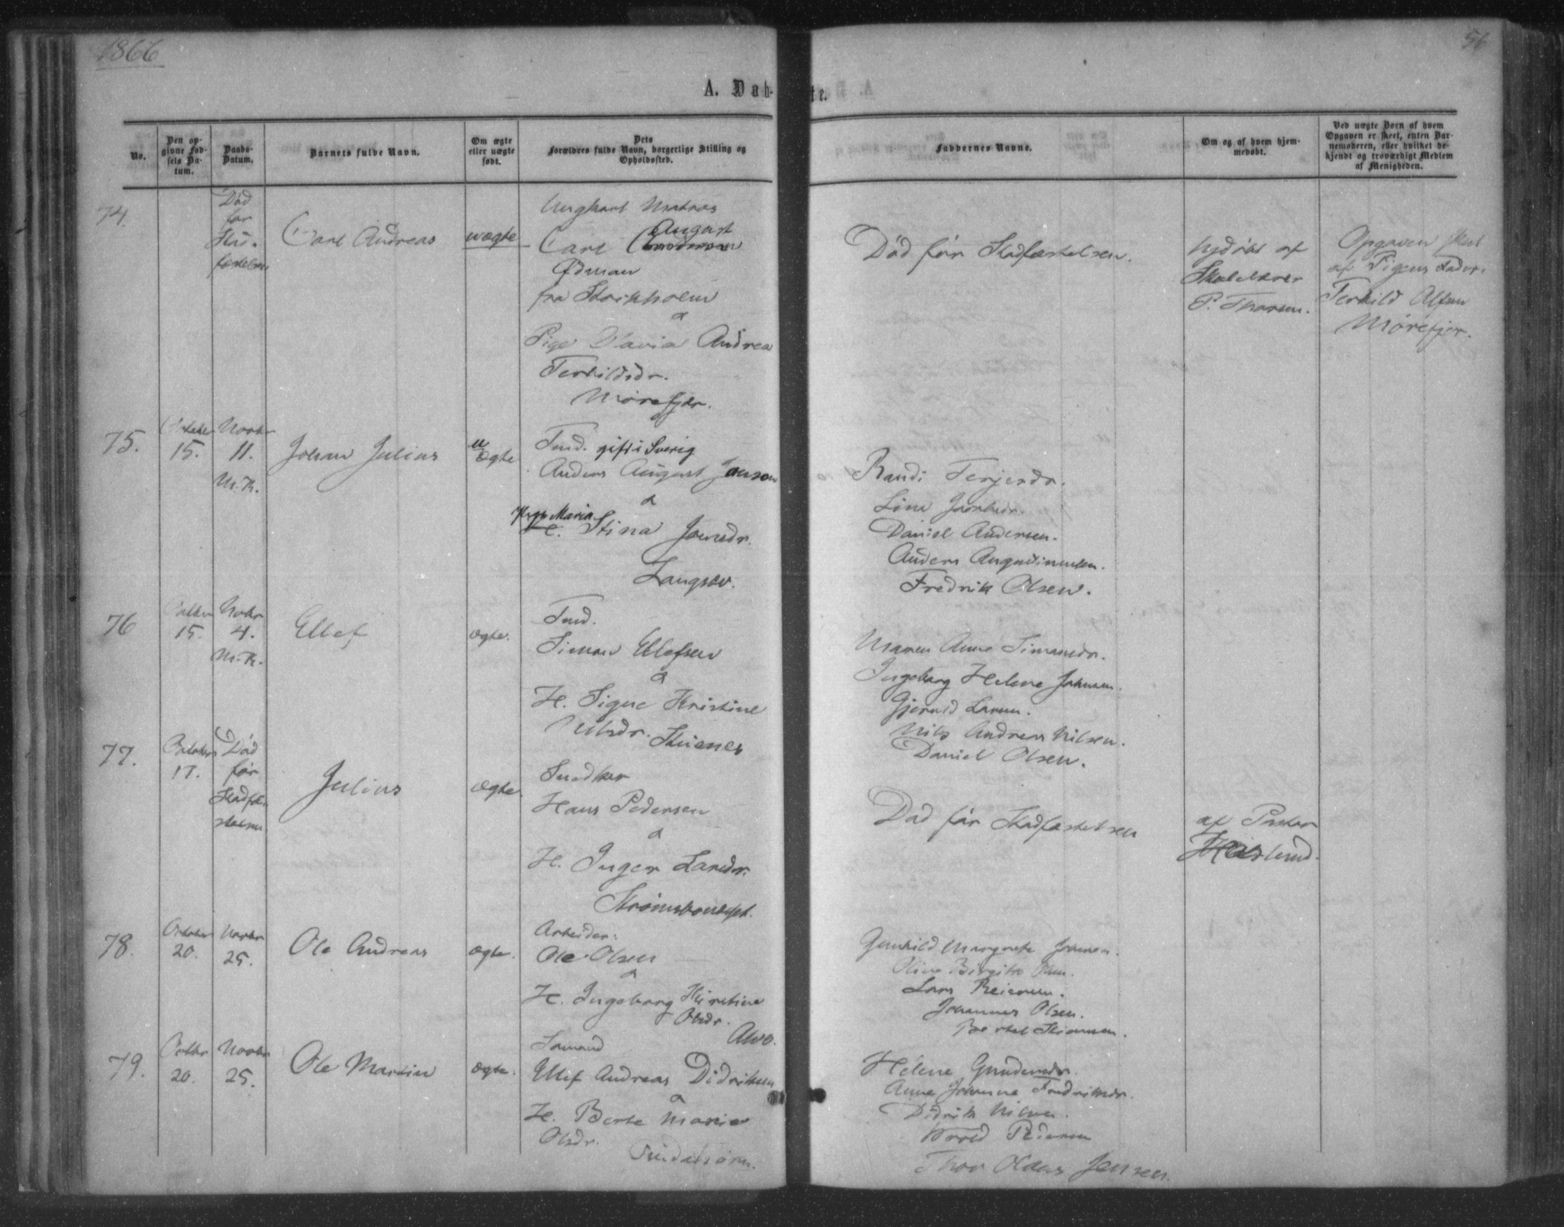 1866
56
A. Døb-
te.
No.
Den op-
givne Fød-
sels Da-
tum.
Daabs-
Datum.
Barnets fulde Navn.
Om ægte
eller uægte
født.
Dets
Forældres fulde Navn, borgerlige Stilling og
Opholdssted.
Faddernes Navne.
Om og af hvem hjem-
medøbt.
Ved uægte Børn af hvem
Opgaven er skeet, enten Bar-
nemoderen, eller hvilket be-
kjendt og troværdigt Medlem
af Menigheden.
74.
Død
før
Carl Andreas
uægte
Ungkarl
Carl August
fra Stockholm
&
Pige Maria Andrea
Terkildsdr.
Mørefjær.
Død før Stadfæstelsen.
hjdøbt af
Skolelærer
P. Thorsen.
Opgaven skeet
af Pigens Fader
Terkild
Mørefjær.
75.
October
15.
Novbr
11.
M.K.
Johan Julius
uægte
Tmd. gift i Sverig
Anders August Jonson
&
Pige Maria
Stina Jonsdr.
Langsæv.
Randi Terjesdr.
Daniel Andersen.
Anders Augustinusen.
Fredrik Olsen.
76
Octbr
15.
Novbr
4.
M.K.
Ellef
ægte.
Tmd.
Simon Ellefsen
&
H. Signe Kristine
Nilsdr.
Maren Anne Simonsdr.
Ingeborg Helene Johnsen.
Gjeruld Larsen.
Nils Andreas Nilsen.
Daniel Olsen.
77.
October
17.
Død
før
Stadfæ-
stelsen
Julius
ægte
Snedker
Hans Pedersen
&
H. Inger Larsdr.
Død før Stadfæstelsen
af Pastor
78.
October
20.
Novbr
25.
Ole Andreas
ægte.
Arbeider.
Ole Olsen
&
H. Ingeborg Kirstine
Olsdr.
Alve.
Gunhild Margrete
Lars Reiersen.
Johannes Olsen.
79.
Octbr
20.
Novbr
25.
Ole Martin
ægte.
Sømand
Ellef Andreas Didriksen
&
H. Berte Marie
Olsdr.
Helene Gundersdr.
Anne Johanne Fredriksdr.
Didrik Nilsen.
Thor Olaus Jensen.